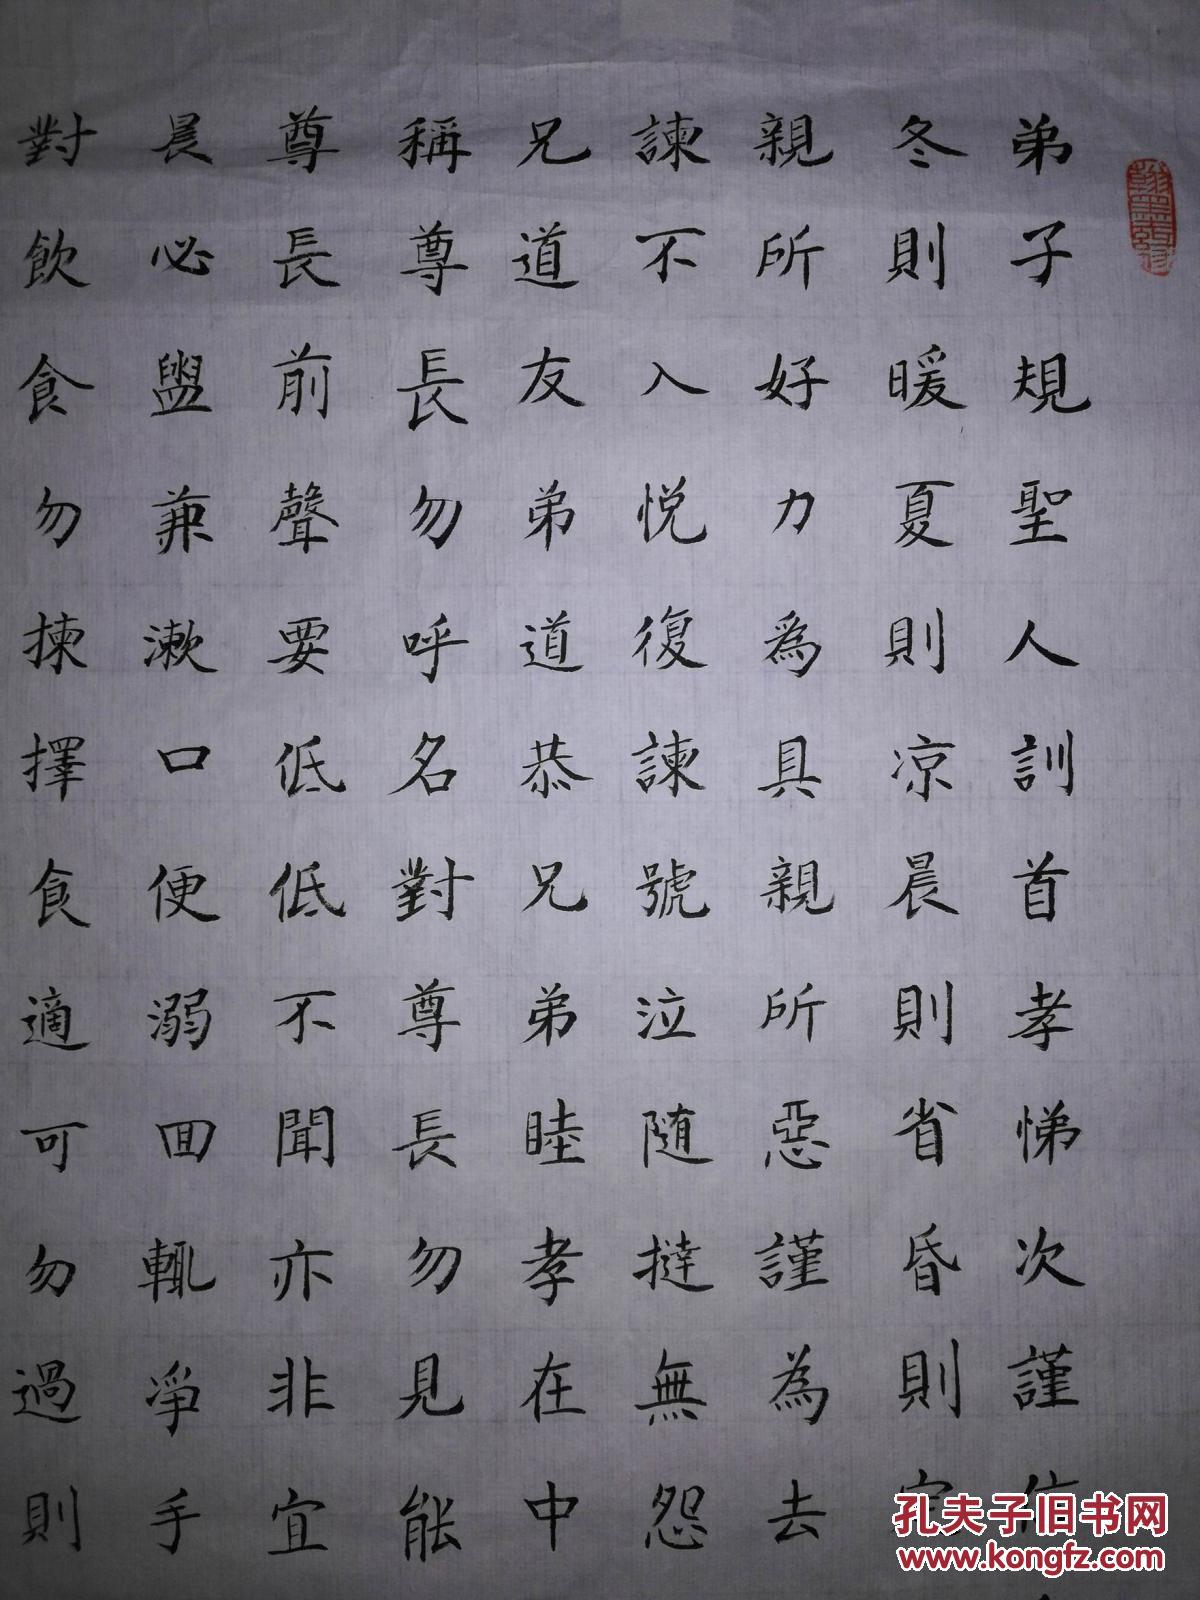 弟子規聖人訓首孝悌次謹信
冬則暖夏則凉晨則省昏則定
親所好力為具親所惡謹為去
諫不入悦復諫號泣随撻無怨
兄道友弟道恭兄弟睦孝在中
稱尊長勿呼名對尊長勿見能
尊長前聲要低低不聞亦非宜
晨必盥兼漱口便溺回輒凈手
對飲食勿揀擇食適可勿過則
孔夫子旧书网
www.kongfz.com